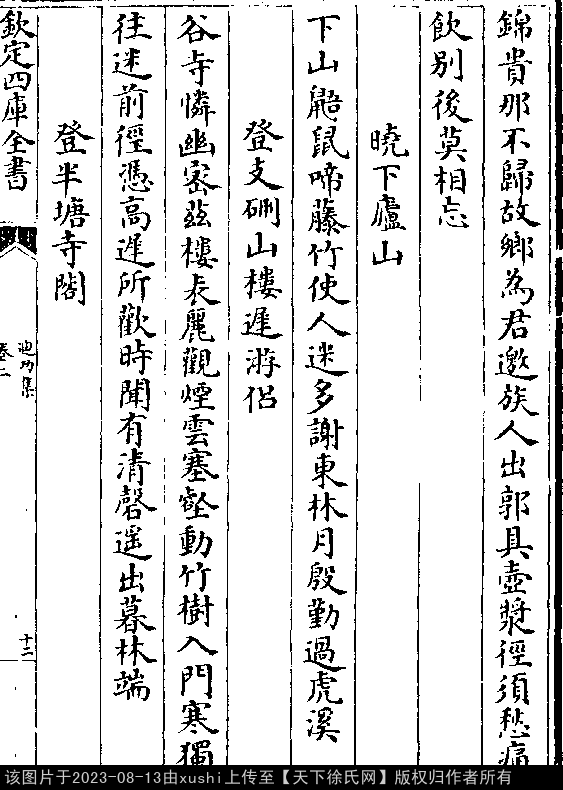 錦貴那不歸故鄉為君邀族人出郭具壺漿徑須愁痛
飲别後莫相忘
曉下廬山
下山鼯鼠啼藤竹使人迷多謝東林月殷勤過虎溪
登支硎山樓遲游侶
谷寺憐幽宻兹樓表麗觀煙雲塞壑動竹樹入門寒獨
往迷前徑憑高遲所歡時聞有清磬遥出暮林端
登半塘寺閣
欽定四庫全書
迪功集
卷二
十二
该图片于2023-08-13由xushi上传至【天下徐氏网】版权归作者所有